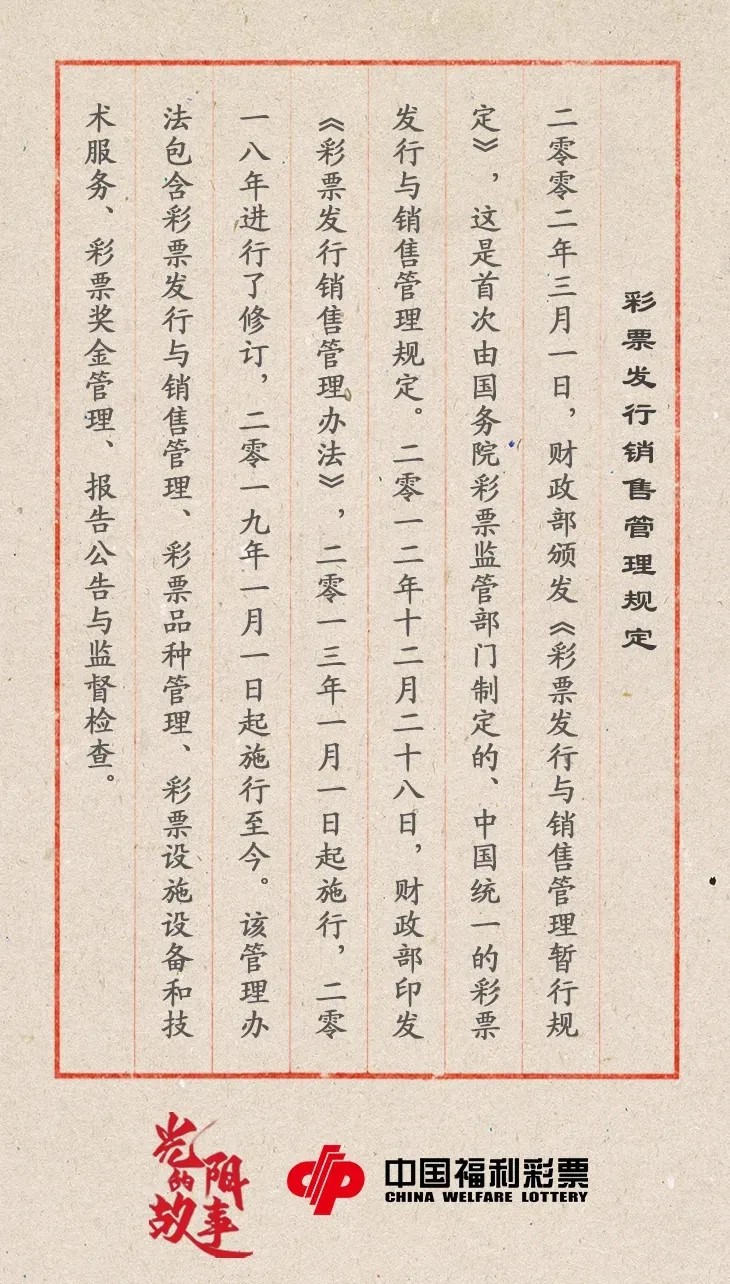 彩票发行销售管理规定
二零零二年三月一日，财政部颁发《彩票发行与销售管理暂行规
定》，这是首次由国务院彩票监管部门制定的、中国统一的彩票
发行与销售管理规定。二零一二年十二月二十八日，财政部印发
《彩票发行销售管理办法》，二零一三年一月一日起施行，二零
一八年进行了修订，二零一九年一月一日起施行至今。该管理办
法包含彩票发行与销售管理、彩票品种管理、彩票设施设备和技
术服务、彩票奖金管理、报告公告与监督检查。
光阴的故事
中国福利彩票
CHINA WELFARE LOTTERY